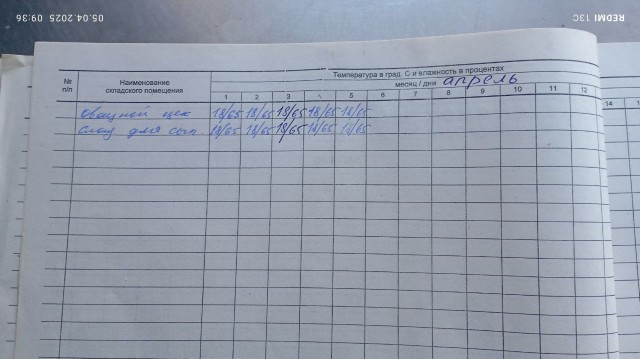 05.04.2025 09:36
REDMI 13C
№ п/п
Наименование складского помещения
Температура в град. С и влажность в процентах
месяц / дни апрель
1 2 3 4 5 6 7 8 9 10 11 12 14
Овощной цех 18/65 18/65 18/65 18/65 18/65
Склад для сып. 18/65 18/65 18/65 18/65 18/65